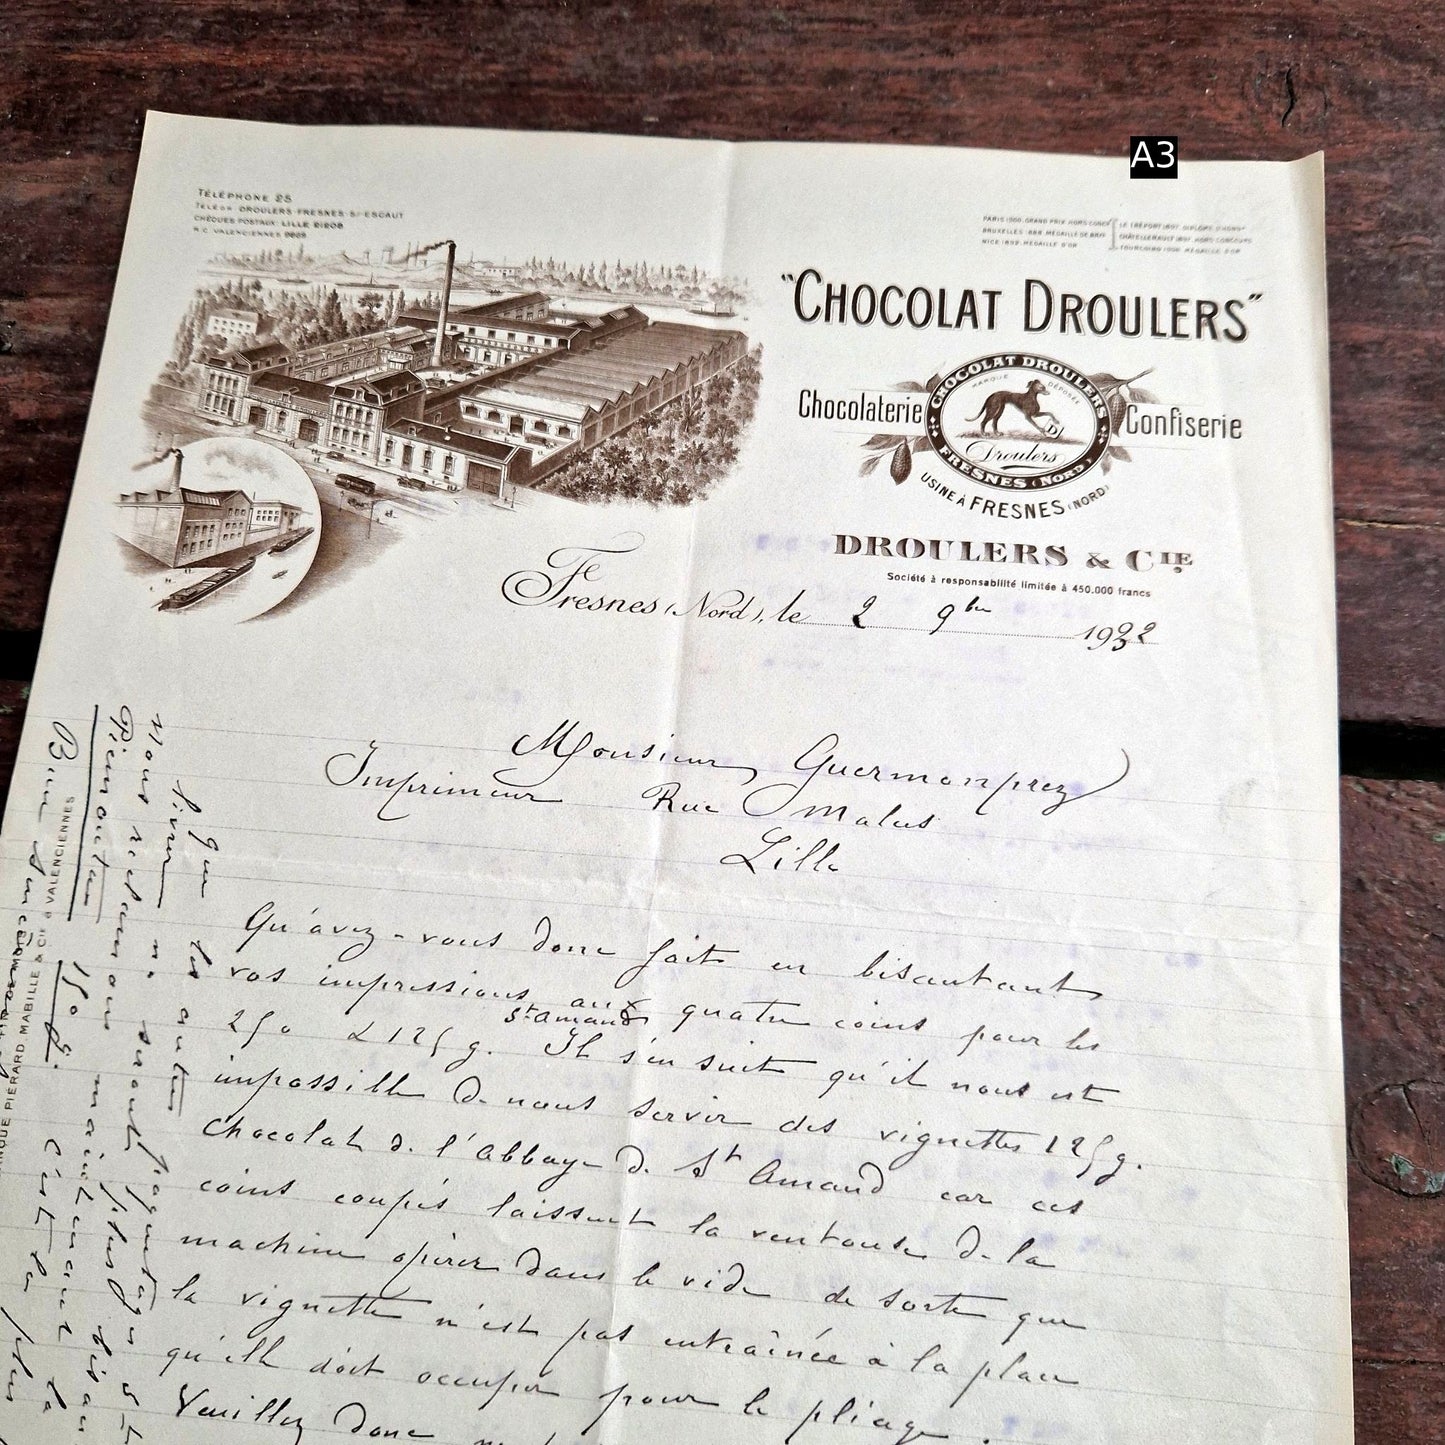 A3
TÉLÉPHONE 25
TÉLÉGR. DROULERS-FRESNES-S/-ESCAUT
CHÈQUES POSTAUX: LILLE
R.C. VALENCIENNES
PARIS 1900, GRAND PRIX, HORS CONC
BRUXELLES 1888, MÉDAILLE DE
NICE 1892, MÉDAILLE D'OR
LE TRÉPORT 1897, DIPLÔME D'HONr
CHÂTELLERAULT 1897, HORS CONCOURS
TOURCOING 1906, MÉDAILLE D'OR
"CHOCOLAT DROULERS"
Chocolaterie
Confiserie
CHOCOLAT DROULERS
MARQUE DÉPOSÉE
D
Droulers
FRESNES (NORD)
USINE À FRESNES (NORD)
DROULERS & CIE
Société à responsabilité limitée à 450.000 francs
Fresnes (Nord), le 2 9bre 1932
Monsieur Guermonprez
Imprimeur Rue Malus
Lille
Qu'avez-vous donc fait en biseautant
vos impressions aux quatre coins pour les
250 & 125 g. St Amand Il s'en suit qu'il nous est
impossible de nous servir des vignettes 125 g.
Chocolat de l'Abbaye de St Amand car ces
coins coupés laissent la ventouse de la
machine opérer dans le vide de sorte que
la vignette n'est pas entraînée à la place
qu'elle doit occuper pour le pliage.
Veuillez donc
que les autres
livrer ne
Nous réclamons
Piemontais 150 g. C'est la plus
PIÉRARD, MABILLE & CIE à VALENCIENNES